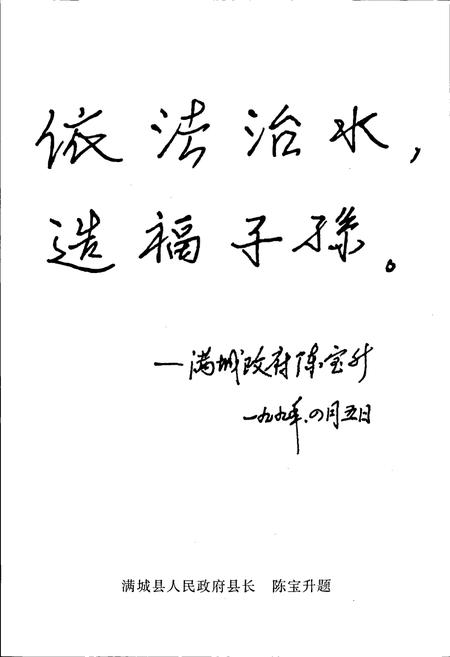 依法治水，
造福子孫。
—满城政府陈宝升
一九九年.四月五日
满城县人民政府县长 陈宝升题